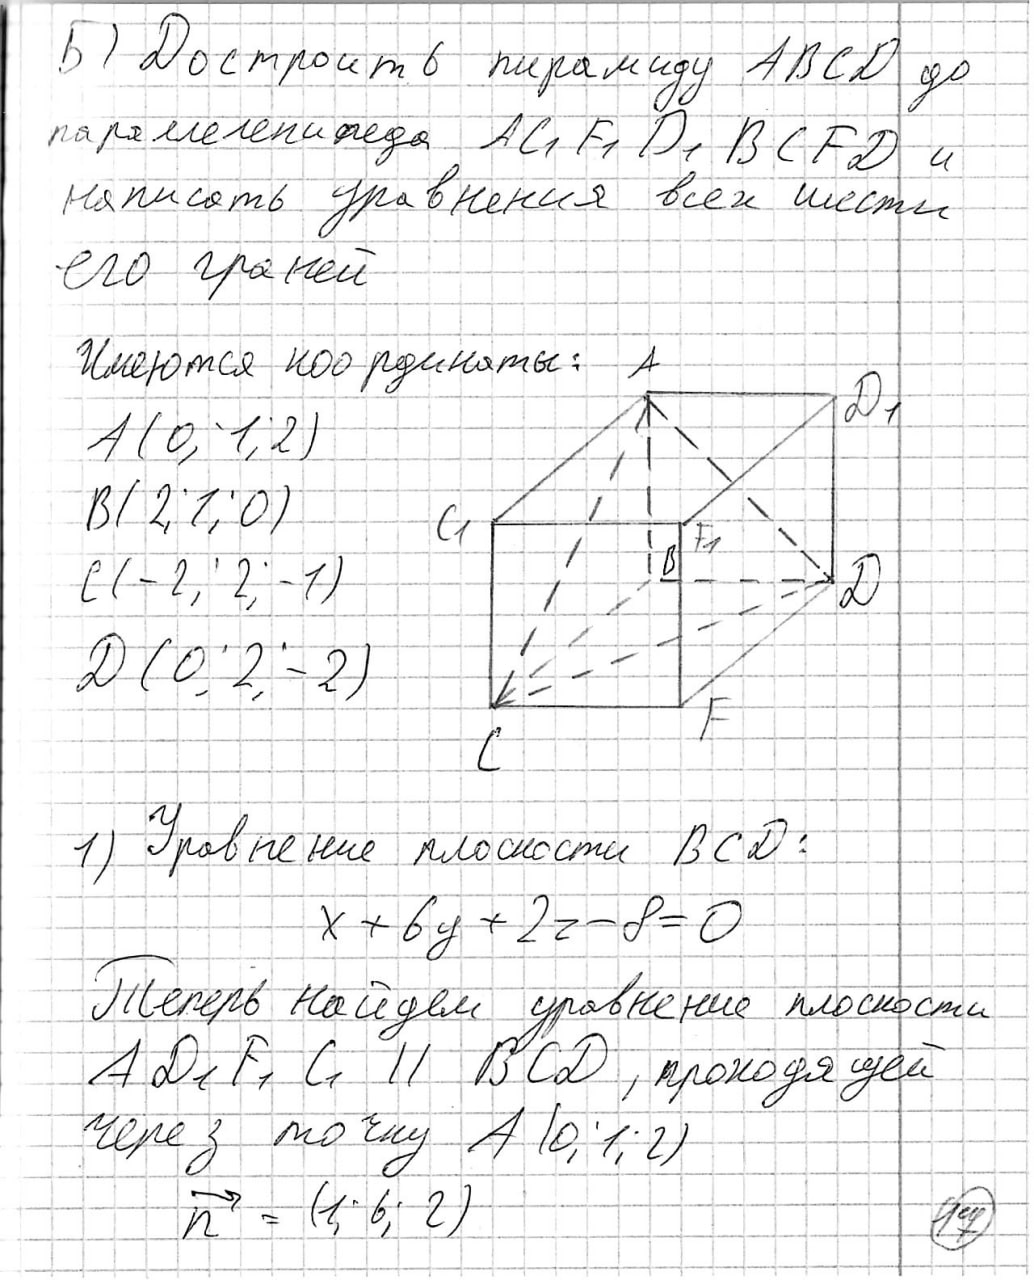 Б) Достроить пирамиду ABCD до
параллелепипеда AC₁F₁D₁BCFD и
написать уравнения всех шести
его граней
Имеются координаты:
A(0; 1; 2)
B(2; 1; 0)
C(-2; 2; -1)
D(0; 2; -2)
A
D₁
C₁
F₁
B
D
F
C
1) Уравнение плоскости BCD:
x + 6y + 2z - 8 = 0
Теперь найдем уравнение плоскости
AD₁F₁C₁ || BCD, проходящей
через точку A(0; 1; 2)
n⃗ = (1; 6; 2)